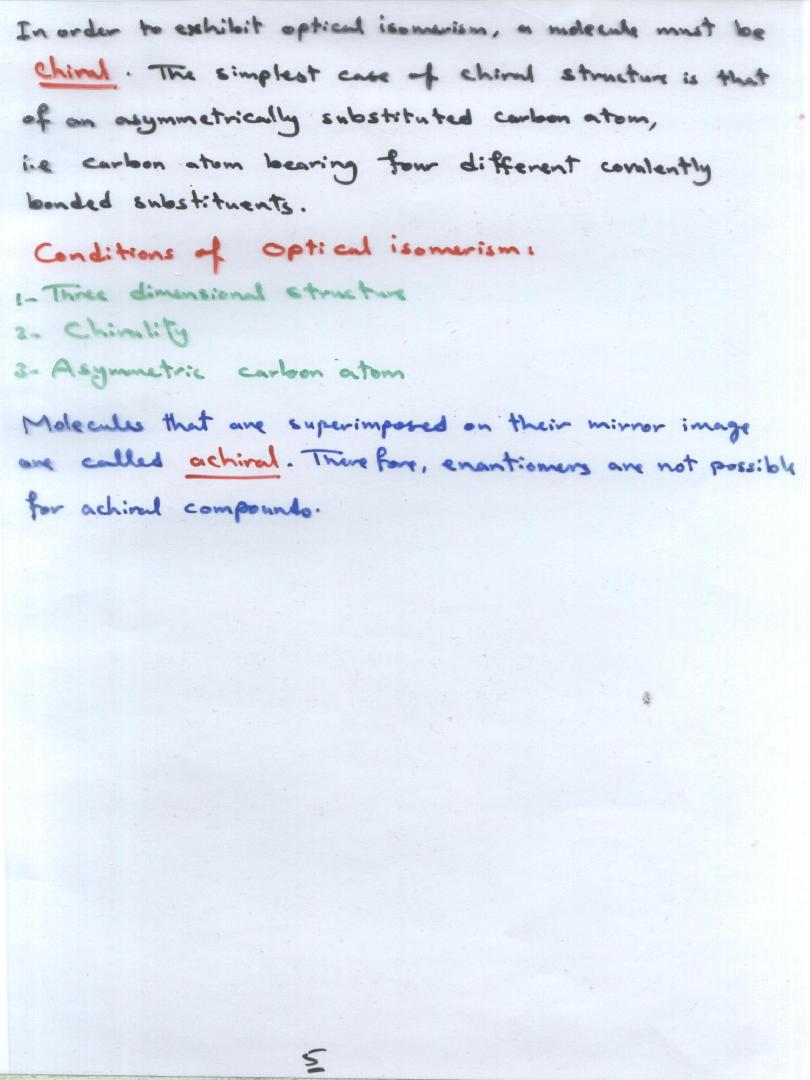 In order to exhibit optical isomerism, a molecule must be
chiral. The simplest case of chiral structure is that
of an asymmetrically substituted carbon atom,
i.e carbon atom bearing four different covalently
bonded substituents.
Conditions of optical isomerism:
1- Three dimensional structure
2- Chirality
3- Asymmetric carbon atom
Molecules that are superimposed on their mirror image
are called achiral. Therefore, enantiomers are not possible
for achiral compounds.
5